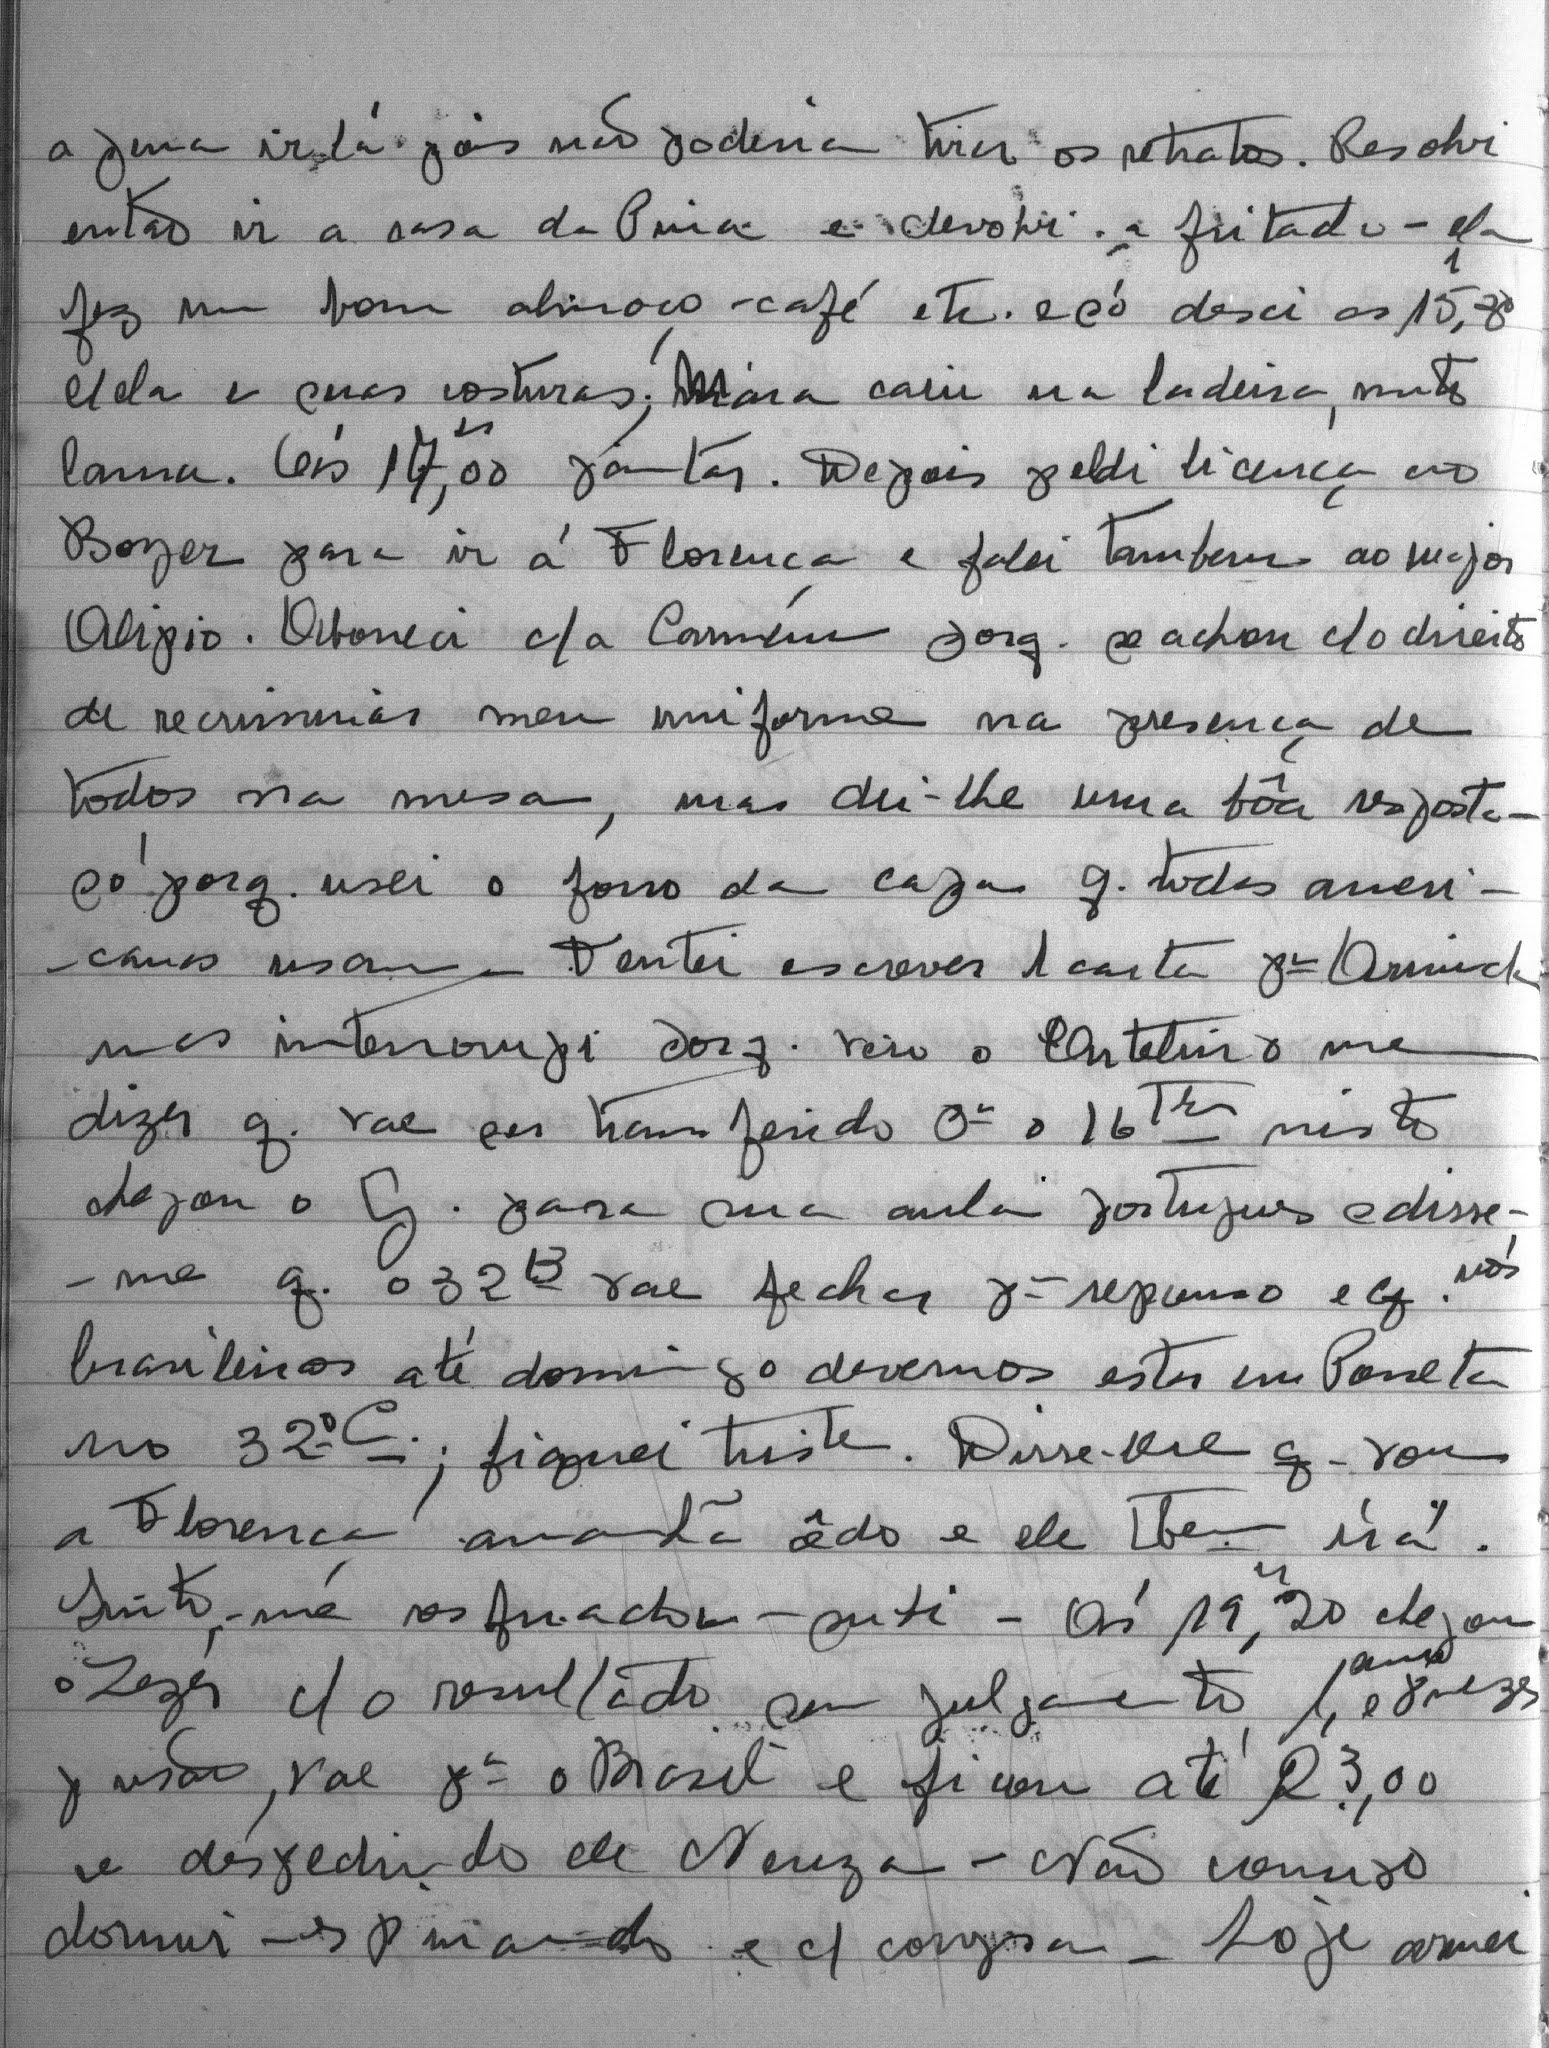 a pena ir lá pois não poderia tirar os retratos. Resolvi
então ir a casa da Pina e devolvi a fritada - ela
fez um bom almoço - café etc. e só desci as 15,30
Elda e suas costuras; Mára caiu na ladeira, muito
lama. Ás 17,00 jantar. Depois pedi licença ao
Boyer para ir á Florença e falei tambem ao major
Alipio. Aborreci c/a Carmém porq. se achou c/o direito
de recriminar meu uniforme na presença de
todos na mesa, mas dei-lhe uma bôa resposta -
só porq. usei o forro da capa q. todas ameri-
-canas usam - Tentei escrever 1 carta pª
mas interrompi porq. veio o me
dizer q. vae ser transferido pª o 16 nisto
chegou o para sua aula portugues e disse-
-me q. o 32º vae fechar pª repouso e q. nós
brasileiros até domingo devemos estar em
no 32º C.; fiquei triste. Disse-lhe q. vou
a Florença amanhã cêdo e ele tbem irá.
Sinto-me resfriada - Ás 19,20 chegou
o c/ o resultado seu julgamento, 1 ano e mezes
prisão, vae pª o Brasil e ficou até 23,00
se despedindo de Neuza - Não consigo
dormir - espirrando e c/ corysa - Hoje